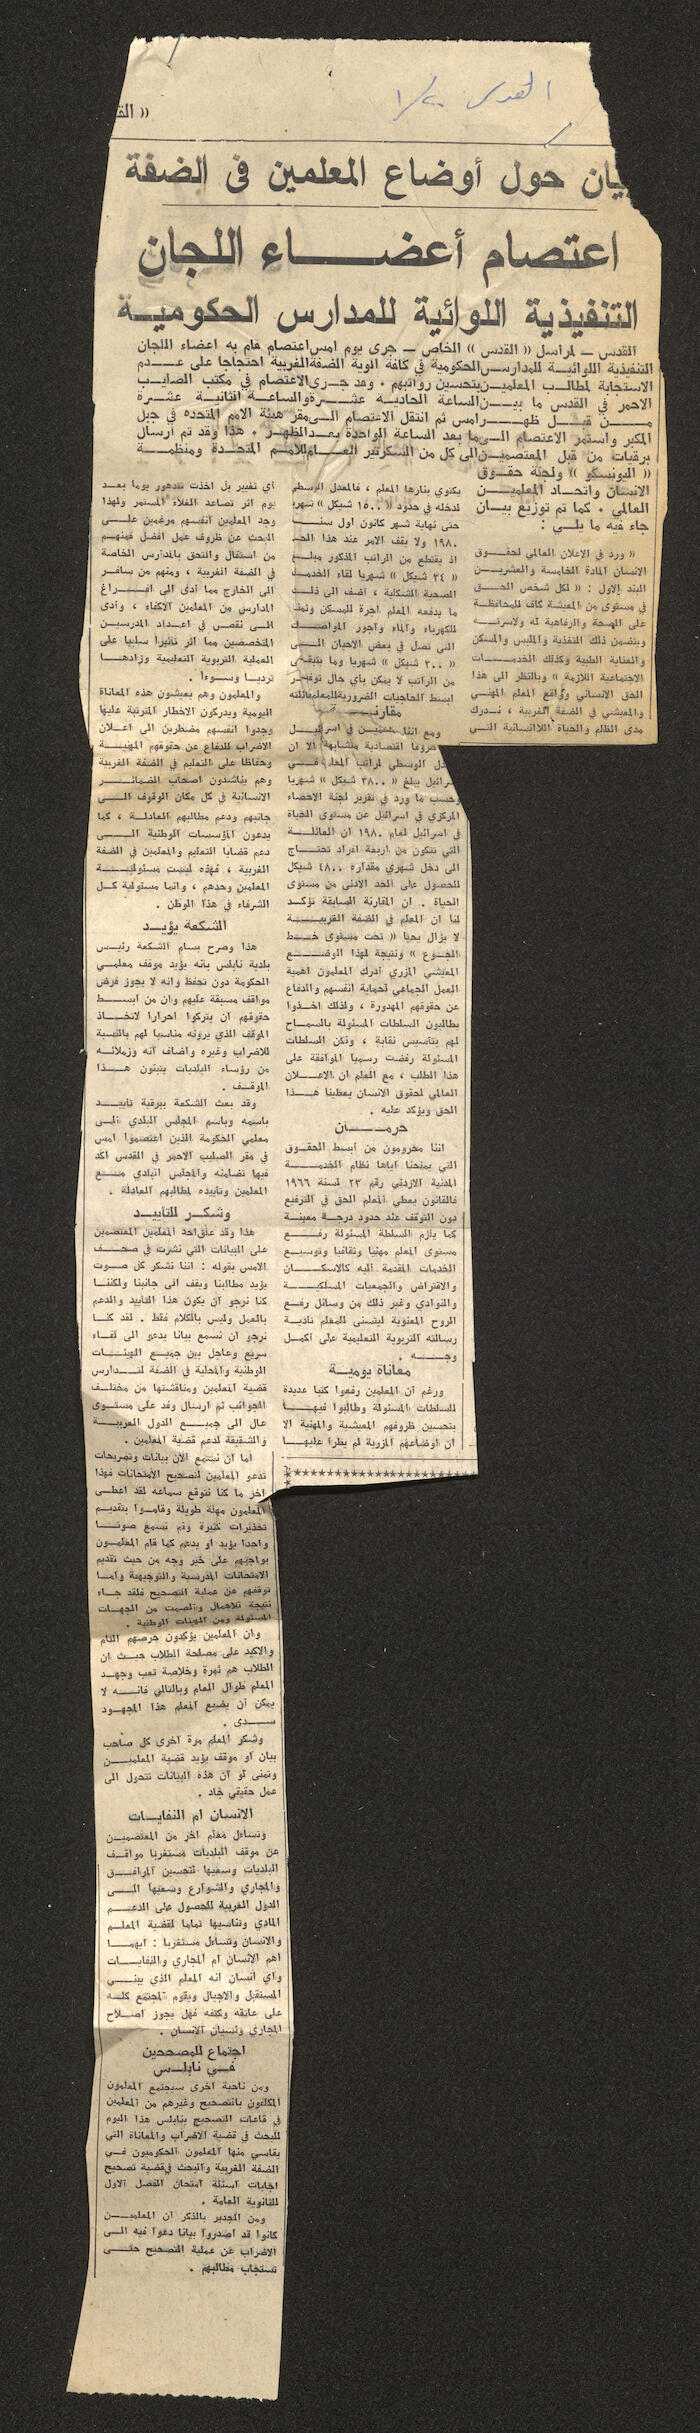 القدس ١/٢٠
« الق
بيان حول أوضاع المعلمين فى الضفة
اعتصام أعضاء اللجان
التنفيذية اللوائية للمدارس الحكومية
القدس — لمراسل « القدس » الخاص — جرى يوم امس اعتصام قام به اعضاء اللجان
التنفيذية اللوائية للمدارس الحكومية في كافة الوية الضفة الغربية احتجاجا على عدم
الاستجابة لمطالب المعلمين بتحسين رواتبهم . وقد جرى الاعتصام في مكتب الصليب
الاحمر في القدس ما بين الساعة الحادية عشرة والساعة الثانية عشرة
من قبل ظهر امس ثم انتقل الاعتصام الى مقر هيئة الامم المتحدة في جبل
المكبر واستمر الاعتصام الى ما بعد الساعة الواحدة بعد الظهر . هذا وقد تم ارسال
برقيات من قبل المعتصمين الى كل من السكرتير العام للامم المتحدة ومنظمة
« اليونسكو » ولجنة حقوق
الانسان واتحاد المعلمين
العالمي . كما تم توزيع بيان
جاء فيه ما يلي :
« ورد في الاعلان العالمي لحقوق
الانسان المادة الخامسة والعشرين
البند الاول : « لكل شخص الحق
في مستوى من المعيشة كاف للمحافظة
على الصحة والرفاهية له ولاسرته
ويتضمن ذلك التغذية والملبس والمسكن
والعناية الطبية وكذلك الخدمات
الاجتماعية اللازمة » وبالنظر الى هذا
الحق الانساني وواقع المعلم المهني
والمعيشي في الضفة الغربية ، ندرك
مدى الظلم والحياة اللاانسانية التي
يكتوي بنارها المعلم ، فالمعدل الوسطي
لدخله في حدود « ١٥٠٠ شيكل » شهريا
حتى نهاية شهر كانون اول سنة
١٩٨٠ ولا يقف الامر عند هذا الحد
اذ يقتطع من الراتب المذكور مبلغ
« ٣٤ شيكل » شهريا لقاء الخدمة
الصحية الشكلية ، اضف الى ذلك
ما يدفعه المعلم اجرة للمسكن وثمنا
للكهرباء والماء واجور المواصلات
التي تصل في بعض الاحيان الى
« ٣٠٠ شيكل » شهريا وما يتبقى
من الراتب لا يمكن باي حال توفير
ابسط الحاجيات الضرورية للمعلم وعائلته
مقارنة
ومع اننا مقيمين في اسرائيل
ظروفا اقتصادية متشابهة الا ان
دل الوسطي لراتب المعلم في
سرائيل يبلغ « ٣٨٠٠ شيكل » شهريا
وحسب ما ورد في تقرير لجنة الاحصاء
المركزي في اسرائيل عن مستوى الحياة
في اسرائيل لعام ١٩٨٠ ان العائلة
التي تتكون من اربعة افراد تحتاج
الى دخل شهري مقداره ٤٨٠٠ شيكل
للحصول على الحد الادنى من مستوى
الحياة . ان المقارنة السابقة تؤكد
لنا ان المعلم في الضفة الغربية
لا يزال يحيا « تحت مستوى خط
الجوع » ونتيجة لهذا الوضع
المعيشي المزري ادرك المعلمون اهمية
العمل الجماعي لحماية انفسهم والدفاع
عن حقوقهم المهدورة ، ولذلك اخذوا
يطالبون السلطات المسئولة بالسماح
لهم بتأسيس نقابة ، ولكن السلطات
المسئولة رفضت رسميا الموافقة على
هذا الطلب ، مع العلم ان الاعلان
العالمي لحقوق الانسان يعطينا هذا
الحق ويؤكد عليه .
حرمان
اننا محرومون من ابسط الحقوق
التي يمنحنا اياها نظام الخدمة
المدنية الاردني رقم ٢٣ لسنة ١٩٦٦
فالقانون يعطي المعلم الحق في الترفيع
دون التوقف عند حدود درجة معينة
كما يلزم السلطة المسئولة رفع
مستوى المعلم مهنيا وثقافيا وتوسيع
الخدمات المقدمة اليه كالاسكان
والاقتراض والجمعيات السلكية
والنوادي وغير ذلك من وسائل رفع
الروح المعنوية ليتسنى للمعلم تأدية
رسالته التربوية التعليمية على اكمل
وجه .
معاناة يومية
ورغم ان المعلمين رفعوا كتبا عديدة
للسلطات المسئولة وطالبوا فيها
بتحسين ظروفهم المعيشية والمهنية الا
ان اوضاعهم المزرية لم يطرأ عليها
اي تغيير بل اخذت تتدهور يوما بعد
يوم اثر تصاعد الغلاء المستمر ولهذا
وجد المعلمين انفسهم مرغمين على
البحث عن ظروف عمل افضل فمنهم
من استقال والتحق بالمدارس الخاصة
في الضفة الغربية ، ومنهم من سافر
الى الخارج مما ادى الى افراغ
المدارس من المعلمين الاكفاء ، وادى
الى نقص في اعداد المدرسين
المتخصصين مما اثر تأثيرا سلبيا على
العملية التربوية التعليمية وزادها
ترديا وسوءا .
والمعلمون وهم يعيشون هذه المعاناة
اليومية ويدركون الاخطار المترتبة عليها
وجدوا انفسهم مضطرين الى اعلان
الاضراب للدفاع عن حقوقهم المهنية
وحفاظا على التعليم في الضفة الغربية
وهم يناشدون اصحاب الضمائر
الانسانية في كل مكان الوقوف الى
جانبهم ودعم مطالبهم العادلة ، كما
يدعون المؤسسات الوطنية الى
دعم قضايا التعليم والمعلمين في الضفة
الغربية ، فهذه ليست مسئولية
المعلمين وحدهم ، وانما مسئولية كل
الشرفاء في هذا الوطن .
الشكعة يؤيد
هذا وصرح بسام الشكعة رئيس
بلدية نابلس بانه يؤيد موقف معلمي
الحكومة دون تحفظ وانه لا يجوز فرض
مواقف مسبقة عليهم وان من ابسط
حقوقهم ان يتركوا احرارا لاتخاذ
الموقف الذي يرونه مناسبا لهم بالنسبة
للاضراب وغيره واضاف انه وزملائه
من رؤساء البلديات يتبنون هذا
الموقف .
وقد بعث الشكعة ببرقية تأييد
باسمه وباسم المجلس البلدي الى
معلمي الحكومة الذين اعتصموا امس
في مقر الصليب الاحمر في القدس اكد
فيها تضامنه والمجلس البلدي مع
المعلمين وتأييده لمطالبهم العادلة .
وشكر للتأييد
هذا وقد علق احد المعلمين المعتصمين
على البيانات التي نشرت في صحف
الامس بقوله : اننا نشكر كل صوت
يؤيد مطالبنا ويقف الى جانبنا ولكننا
كنا نرجو ان يكون هذا التأييد والدعم
بالعمل وليس بالكلام فقط . لقد كنا
نرجو ان نسمع بيانا يدعو الى لقاء
سريع وعاجل بين جميع الهيئات
الوطنية والمحلية في الضفة لتدارس
قضية المعلمين ومناقشتها من مختلف
الجوانب ثم ارسال وفد على مستوى
عال الى جميع الدول العربية
والشقيقة لدعم قضية المعلمين .
اما ان نستمع الآن بيانات وتصريحات
تدعو المعلمين لتصحيح الامتحانات فهذا
آخر ما كنا نتوقع سماعه لقد اعطى
المعلمون مهلة طويلة وقاموا بتقديم
تحذيرات كثيرة ولم نسمع صوتا
واحدا يؤيد او يدعم كما قام المعلمون
بواجبهم على خير وجه من حيث تقديم
الامتحانات المدرسية والتوجيهية واما
توقفهم عن عملية التصحيح فلقد جاء
نتيجة للاهمال والصمت من الجهات
المسئولة ومن الهيئات الوطنية .
وان المعلمين يؤكدون حرصهم التام
والاكيد على مصلحة الطلاب حيث ان
الطلاب هم ثمرة وخلاصة تعب وجهد
المعلم طوال العام وبالتالي فانه لا
يمكن ان يضيع المعلم هذا المجهود
سدى .
وشكر المعلم مرة اخرى كل صاحب
بيان او موقف يؤيد قضية المعلمين
وتمنى لو ان هذه البيانات تتحول الى
عمل حقيقي جاد .
الانسان ام النفايات
وتساءل معلم آخر من المعتصمين
عن موقف البلديات مستغربا مواقف
البلديات وسعيها لتحسين المرافق
والمجاري والشوارع وسعيها الى
الدول العربية للحصول على الدعم
المادي وتناسيها تماما لقضية المعلم
والانسان وتساءل مستغربا : ايهما
اهم الانسان ام المجاري والنفايات
واي انسان انه المعلم الذي يبني
المستقبل والاجيال ويقوم المجتمع كله
على عاتقه وكتفه فهل يجوز اصلاح
المجاري ونسيان الانسان .
اجتماع للمصححين
في نابلس
ومن ناحية اخرى سيجتمع المعلمون
المكلفون بالتصحيح وغيرهم من المعلمين
في قاعات التصحيح بنابلس هذا اليوم
للبحث في قضية الاضراب والمعاناة التي
يقاسي منها المعلمون الحكوميون في
الضفة الغربية والبحث في قضية تصحيح
اجابات اسئلة امتحان الفصل الاول
للثانوية العامة .
ومن الجدير بالذكر ان المعلمين
كانوا قد اصدروا بيانا دعوا فيه الى
الاضراب عن عملية التصحيح حتى
تستجاب مطالبهم .